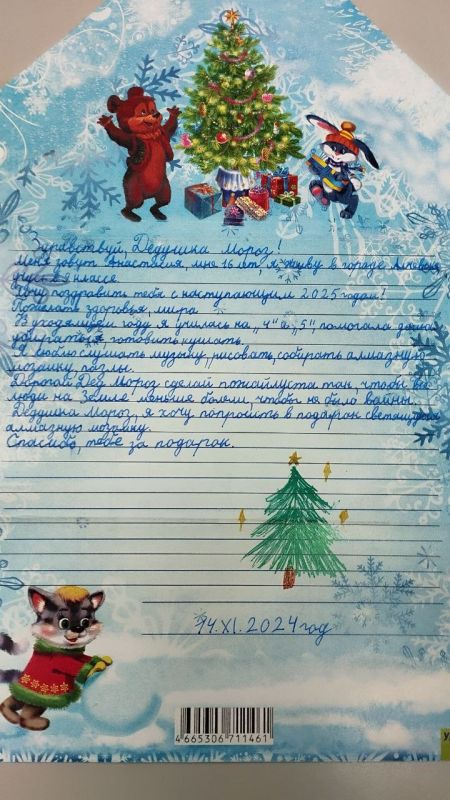 Здравствуй Дедушка Мороз!
Меня зовут Анастасия, мне 16 лет, я живу в городе Алчевске
учусь в 9 классе.
Хочу поздравить тебя с наступающим 2025 годом!
Пожелать здоровья, мира.
В уходящем году я училась на „4" и „5", помогала дома
убираться, готовить кушать.
Я люблю слушать музыку, рисовать, собирать алмазную
мозаику, пазлы.
Дорогой Дед Мороз сделай пожайлуста так, чтобы все
люди на Земле меньше болели, чтобы не было войны.
Дедушка Мороз, я хочу попросить в подарок светящуюся
алмазную мозаику.
Спасибо, тебе за подарок.
14.XI.2024 год
4 665306 711461